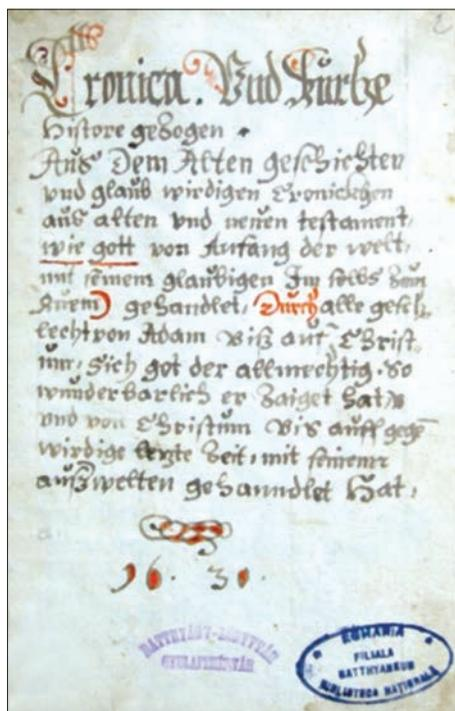 2
Cronica. Vnd kürtze
Histore getzogen.
Aus Dem Alten geschichten
vnd glaub wirdigen Cronickhen
aus alten vnd neuen testament,
wie gott von Anfang der welt,
mit seinem glaubigen
gehandlet, Durch alle gesch,
lecht von Adam biß auf Christ,
um, Sich got der allmechtig. So
wunderbarlich er zaiget hat,
vnd von Christum bis auff gegē
wirdige letzte Zeit, mit seinenn
außwelten gehanndlet Hat,
16.30.
BATTHYÁNY-KÖNYVTÁR
GYULAFEHÉRVÁR
ROMANIA
FILIALA
BATTHYANEUM
BIBLIOTECA NAŢIONALĂ